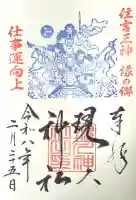 住吉三神 縁の郷
仕事運向上
奉拝
神社
令和八年
二月二十五日